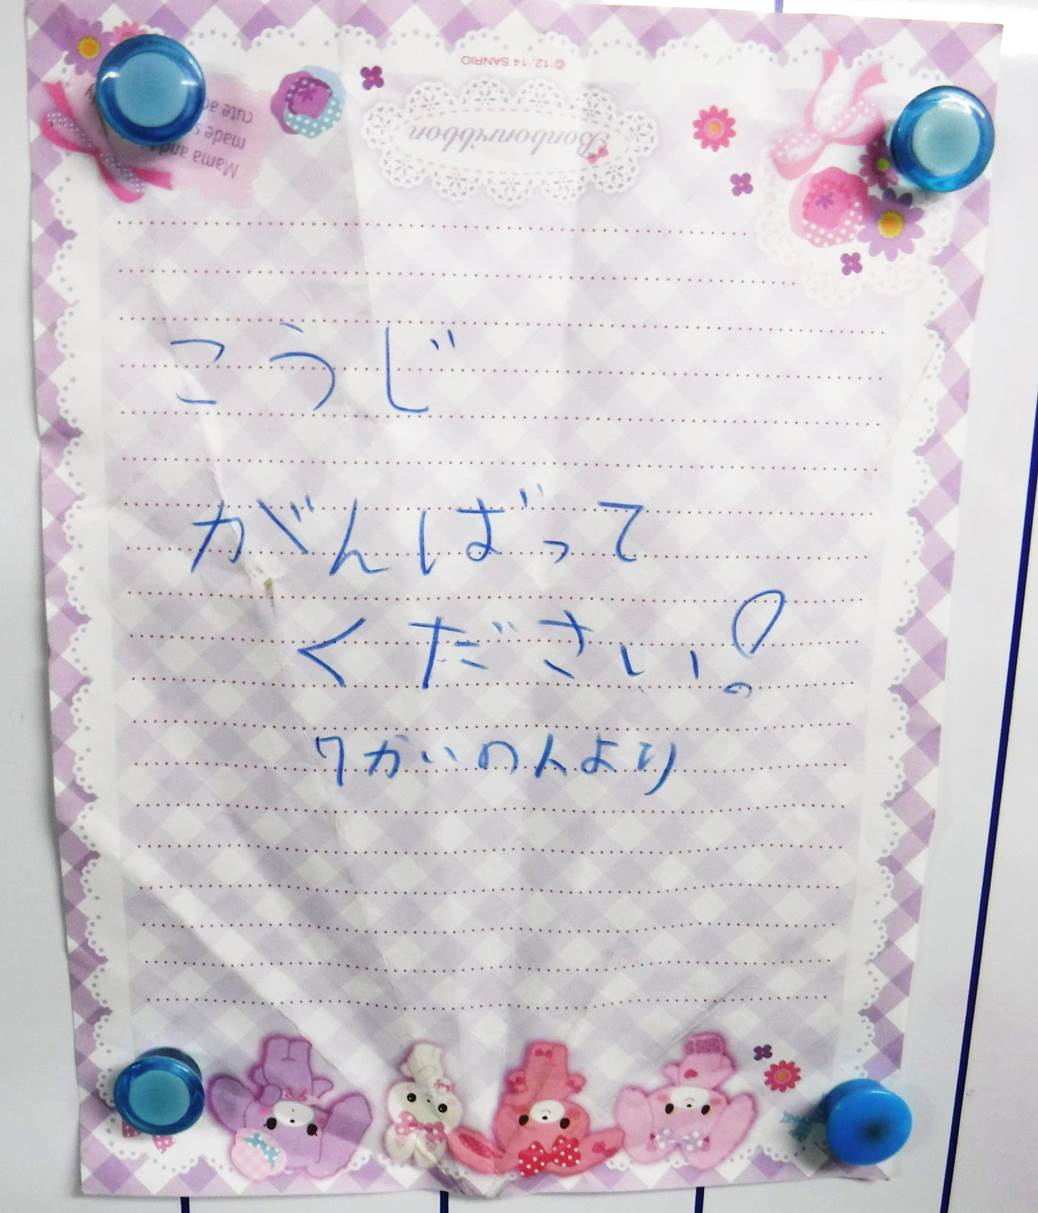 © '12, '14 SANRIO
Bonbonribbon
Mama and
made s
cute ac
こうじ
がんばって
ください!
7かいの人より